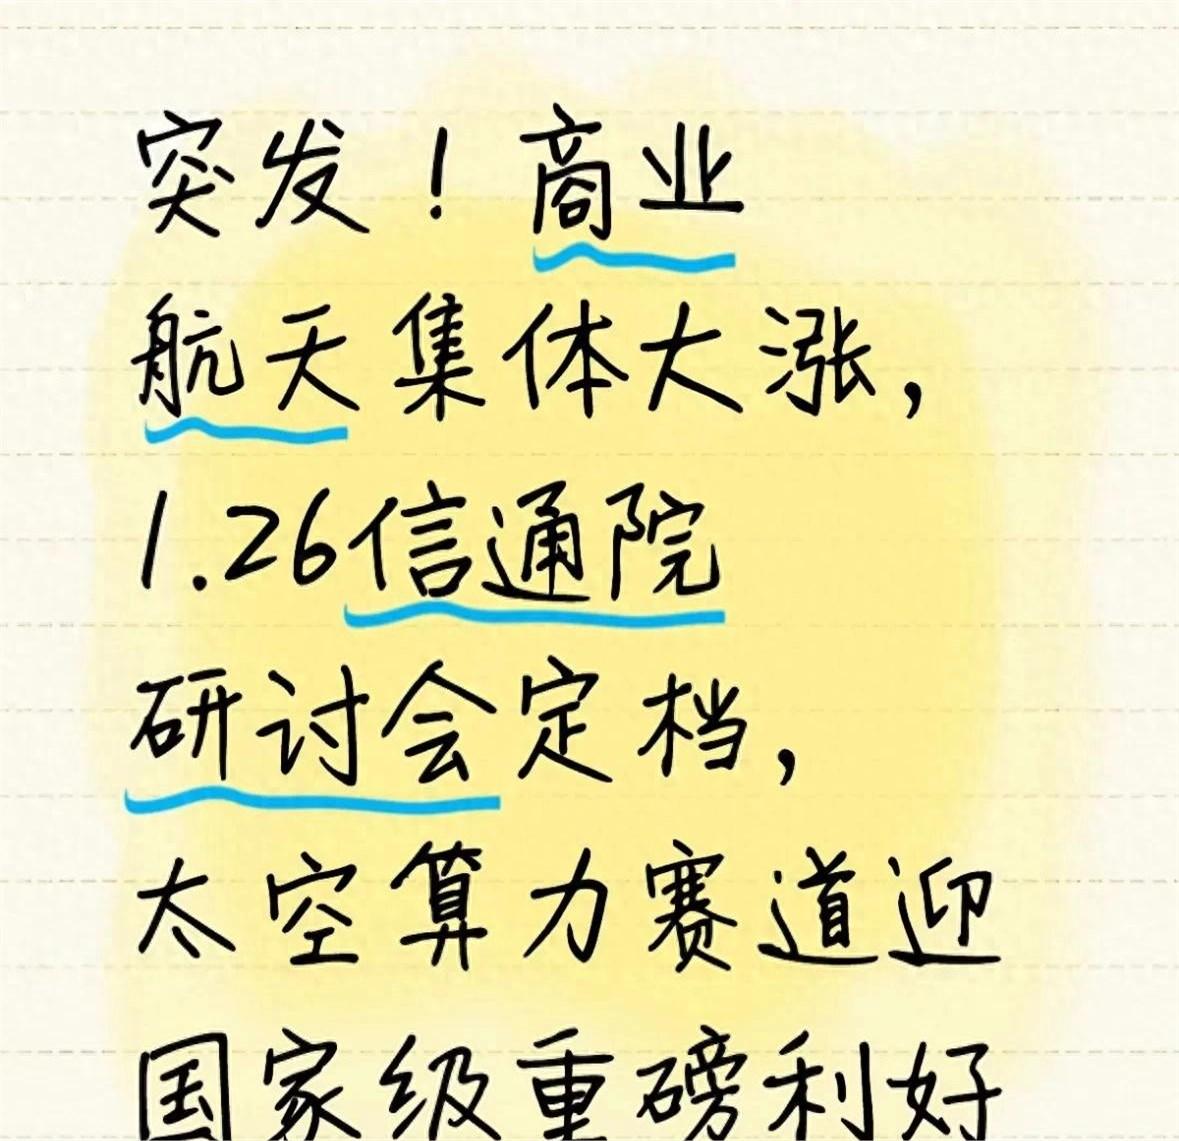 突发！商业
航天集体大涨，
1.26信通院
研讨会定档，
太空算力赛道迎
国家级重磅利好